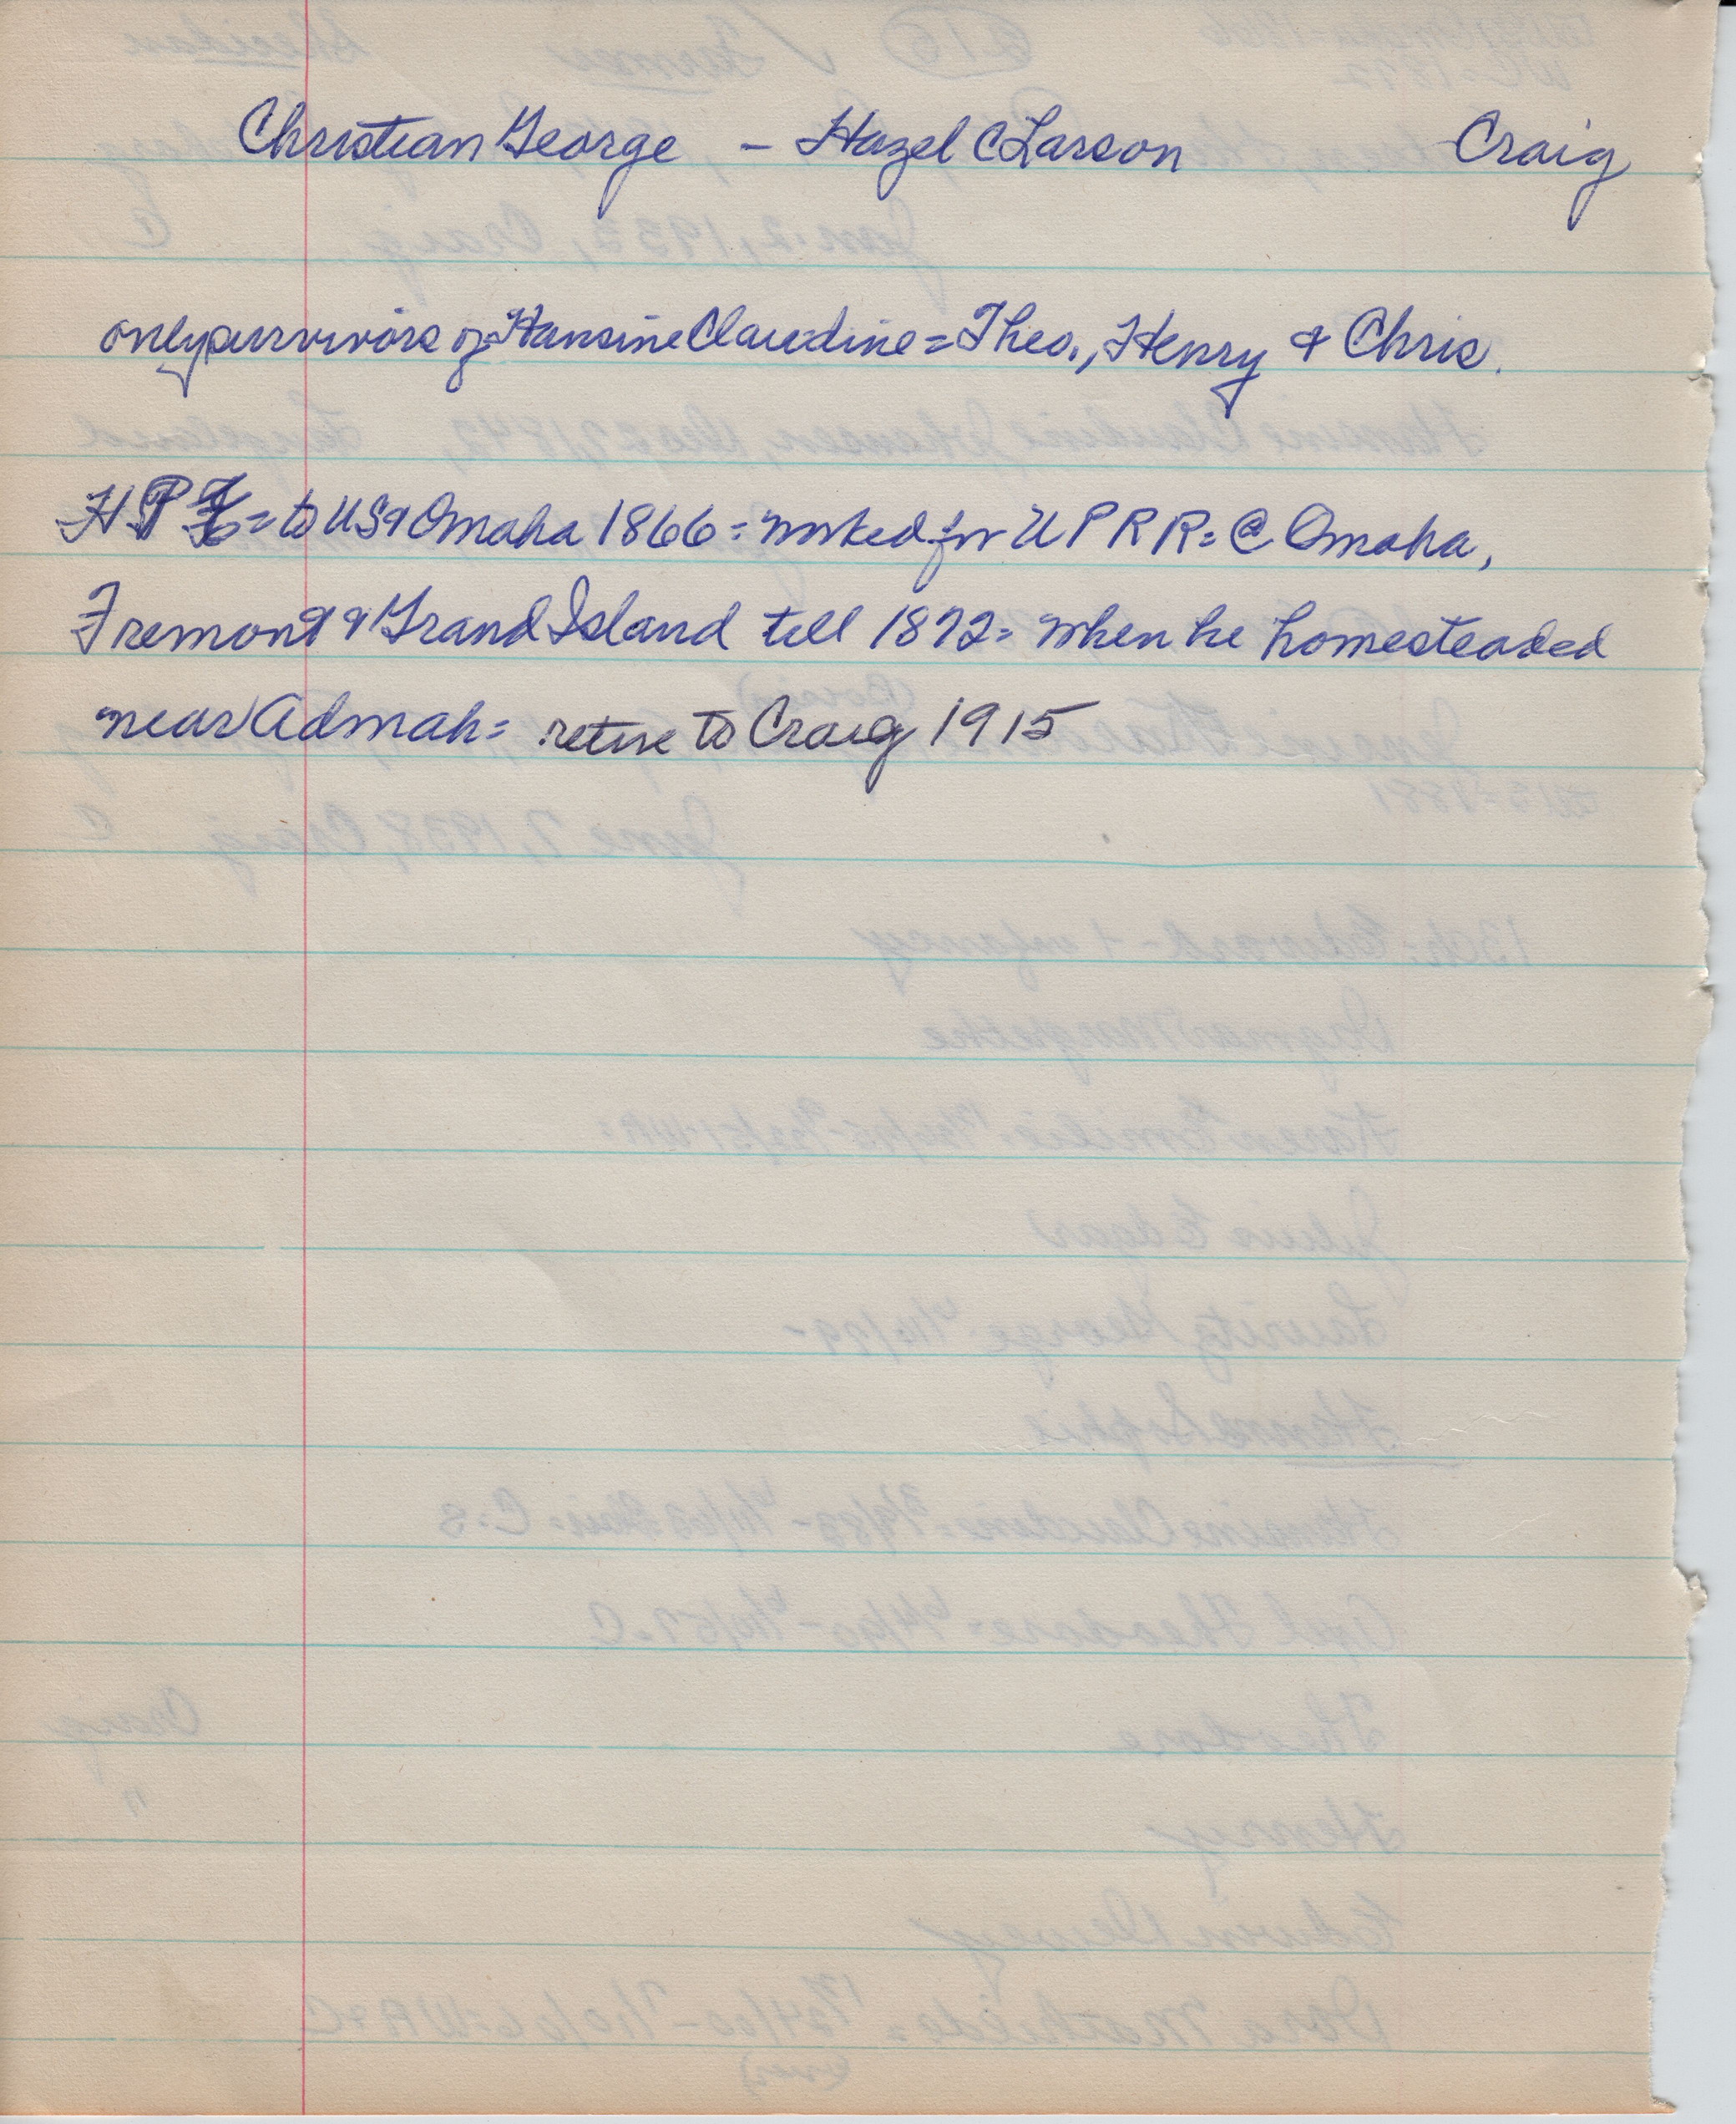 Christian George - Hazel C Larson Craig
only survivors of Hansine Claudine = Theo., Henry & Chris.
H P = to US & Omaha 1866 = worked for U P R R = @ Omaha,
Fremont & Grand Island till 1872 = when he homesteaded
near Admah = retire to Craig 1915